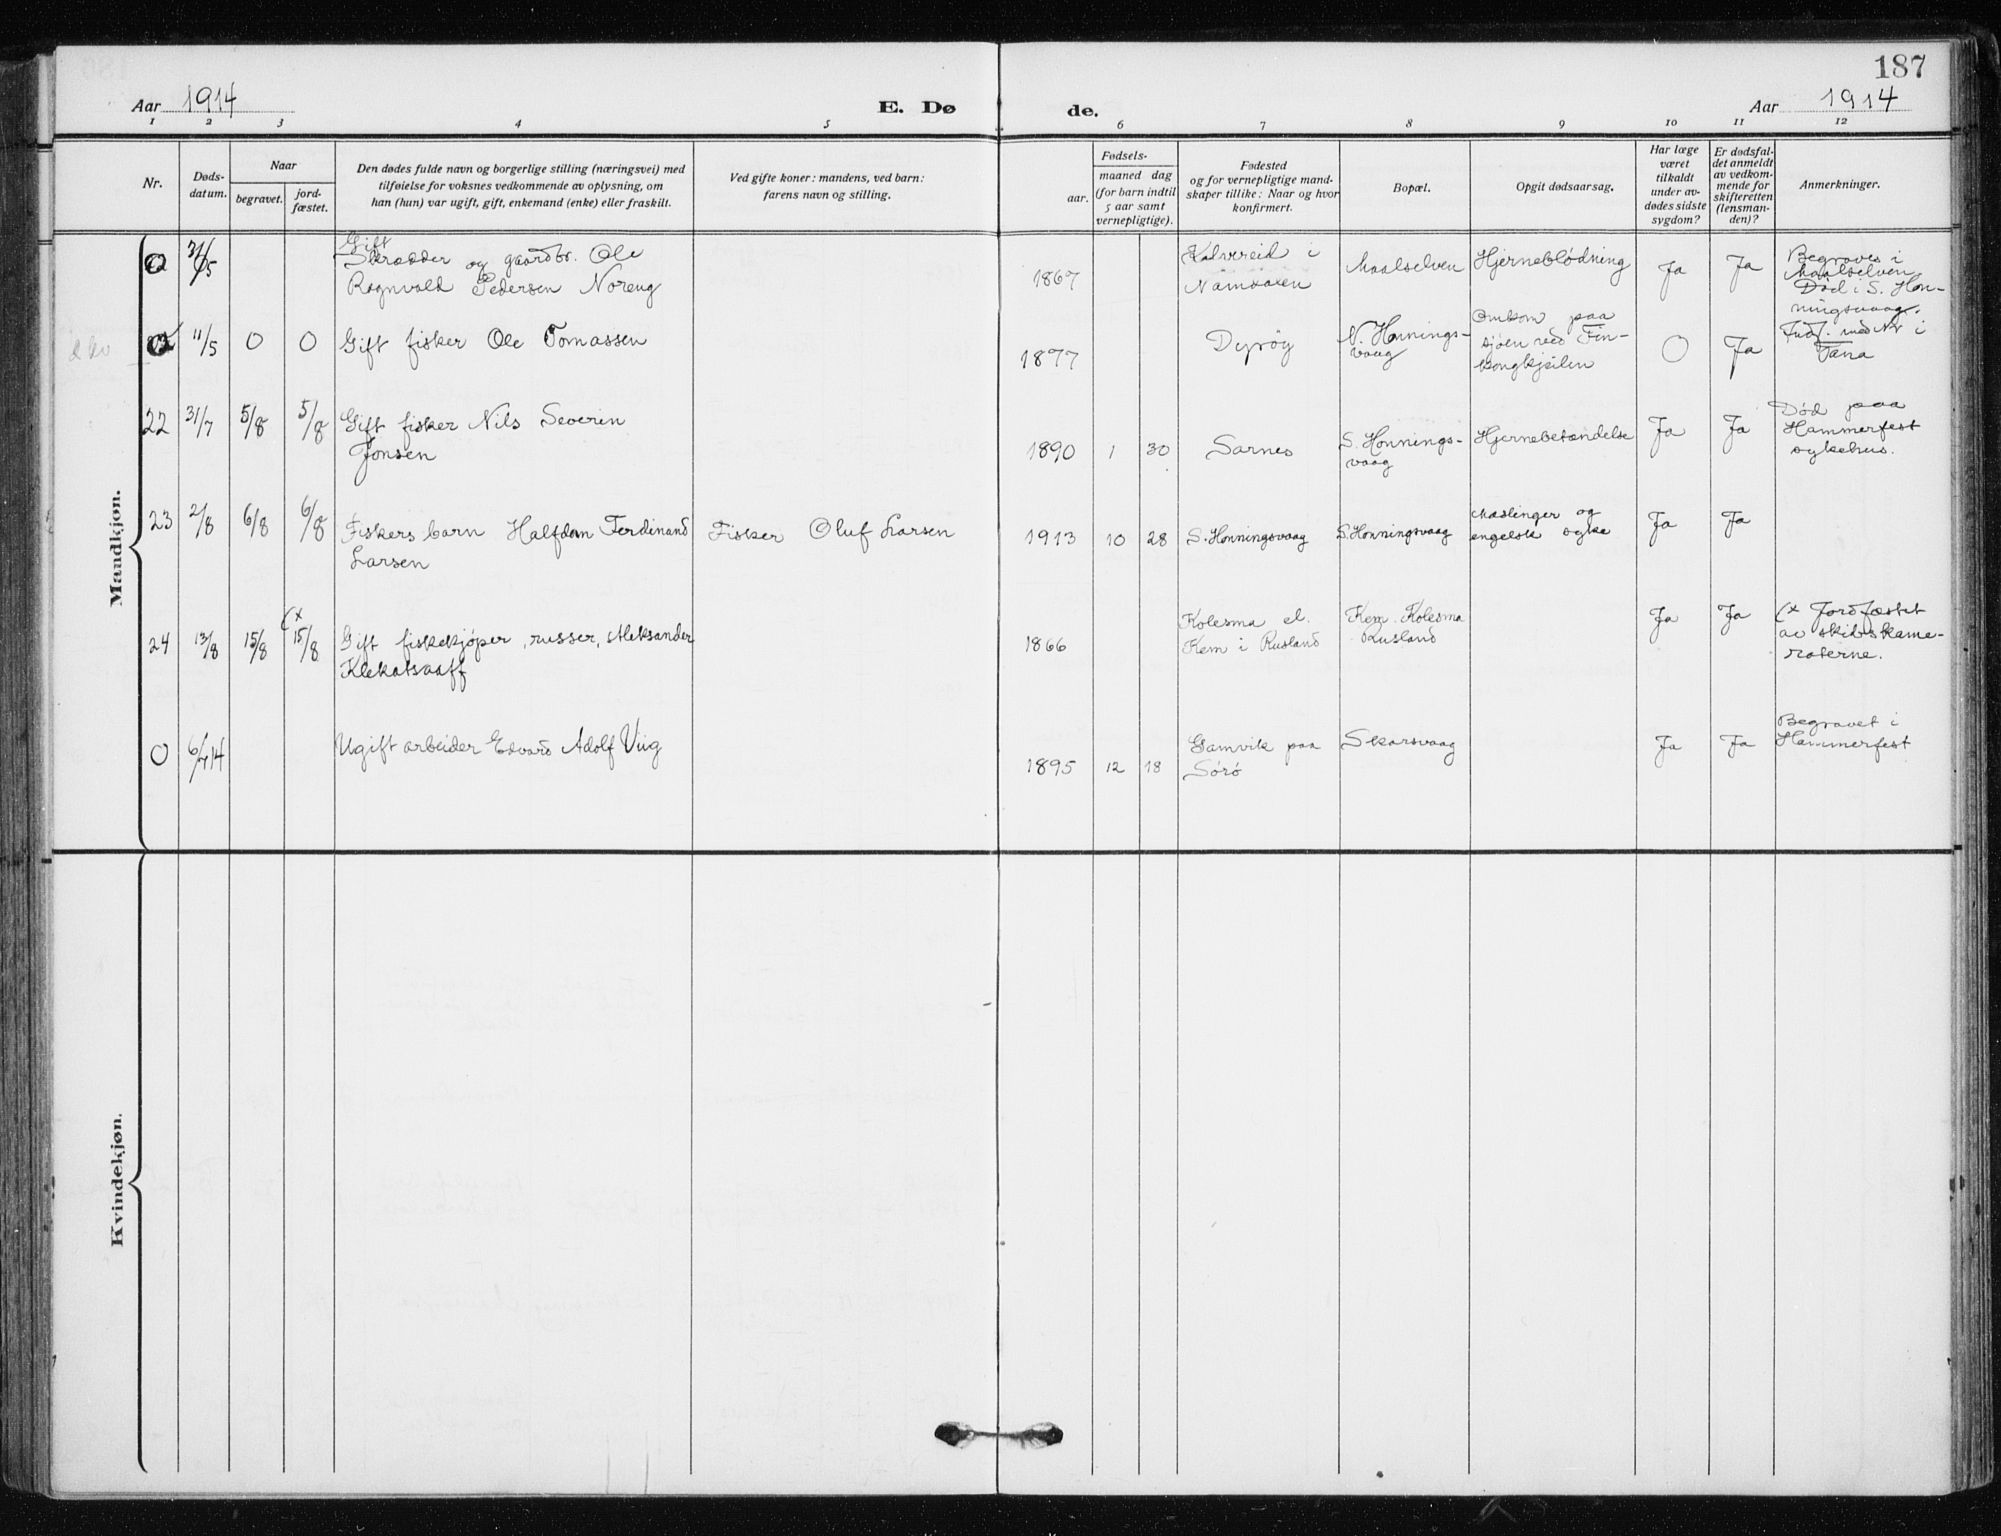 187
Aar 1914
E. Dø
de.
Aar 1914
1 2 3 4 5 6 7 8 9 10 11 12
Nr.
Døds-
datum.
Naar
begravet.
jord-
fæstet.
Den dødes fulde navn og borgerlige stilling (næringsvei) med
tilføielse for voksnes vedkommende av oplysning, om
han (hun) var ugift, gift, enkemand (enke) eller fraskilt.
Ved gifte koner: mandens, ved barn:
farens navn og stilling.
Fødsels-
aar.
maaned dag
(for barn indtil
5 aar samt
vernepligtige).
Fødested
og for vernepligtige mand-
skaper tillike: Naar og hvor
konfirmert.
Bopæl.
Opgit dødsaarsag.
Har læge
været
tilkaldt
under av-
dødes sidste
sygdom?
Er dødsfal-
det anmeldt
av vedkom-
mende for
skifteretten
(lensman-
den)?
Anmerkninger.
Mandkjøn.
0 31/5
Gift
Skrædder og gaardbr. Ole
Ragnvald Pedersen Noreng
1867
Kalvreid i
Namsosen
Maalselven
Hjerneblødning
Ja
Ja
Begraves i
Maalselven.
Død i S. Hon-
ningsvaag.
0 11/5 0 0
Gift fisker Ole Tomassen
1877
Dyrøy
N. Honnings-
vaag
Omkom paa
sjøen ved Fin-
kongkjeilen
0
Ja
Indf. med Nr i
Tana
22 31/7 5/8 5/8
Gift fisker Nils Severin
Jonsen
1890 1 30
Sarnes
S. Honnings-
vaag
Hjernebetændelse
Ja
Ja
Død paa
Hammerfest
sykehus.
23 2/8 6/8 6/8
Fiskers barn Halfdan Ferdinand
Larsen
Fisker Oluf Larsen
1913 10 28
S. Honningsvaag
S. Honningsvaag
Mæslinger og
engelsk syke
Ja
Ja
24 13/8 15/8 (x 15/8
Gift fiskekjøper, russer, Aleksander
Klekatsaaff
1866
Kolesma el.
Kem i Rusland
Kem. Kolesma
Rusland
Ja
Ja
(x Jordfæstet
av skibskame-
raterne.
0 6/7 14
Ugift arbeider Edvard Adolf Viig
1895 12 18
Gamvik paa
Sørø
Skarsvaag
Ja
Ja
Begravet i
Hammerfest
Kvindekjøn.